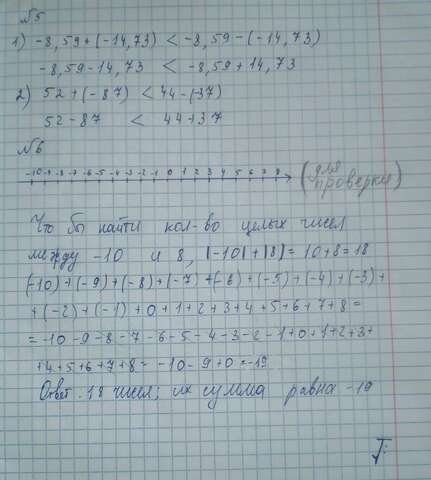 №5
1) -8,59+(-14,73) < -8,59-(-14,73)
-8,59-14,73 < -8,59+14,73
2) 52+(-87) < 44-(-37)
52-87 < 44+37
№6
-10 -9 -8 -7 -6 -5 -4 -3 -2 -1 0 1 2 3 4 5 6 7 8 (для проверки)
Что бы найти кол-во целых чисел
между -10 и 8, |-10|+|8|=10+8=18
(-10)+(-9)+(-8)+(-7)+(-6)+(-5)+(-4)+(-3)+
+(-2)+(-1)+0+1+2+3+4+5+6+7+8=
=-10-9-8-7-6-5-4-3-2-1+0+1+2+3+
+4+5+6+7+8=-10-9+0=-19
Ответ: 18 чисел; их сумма равна -19